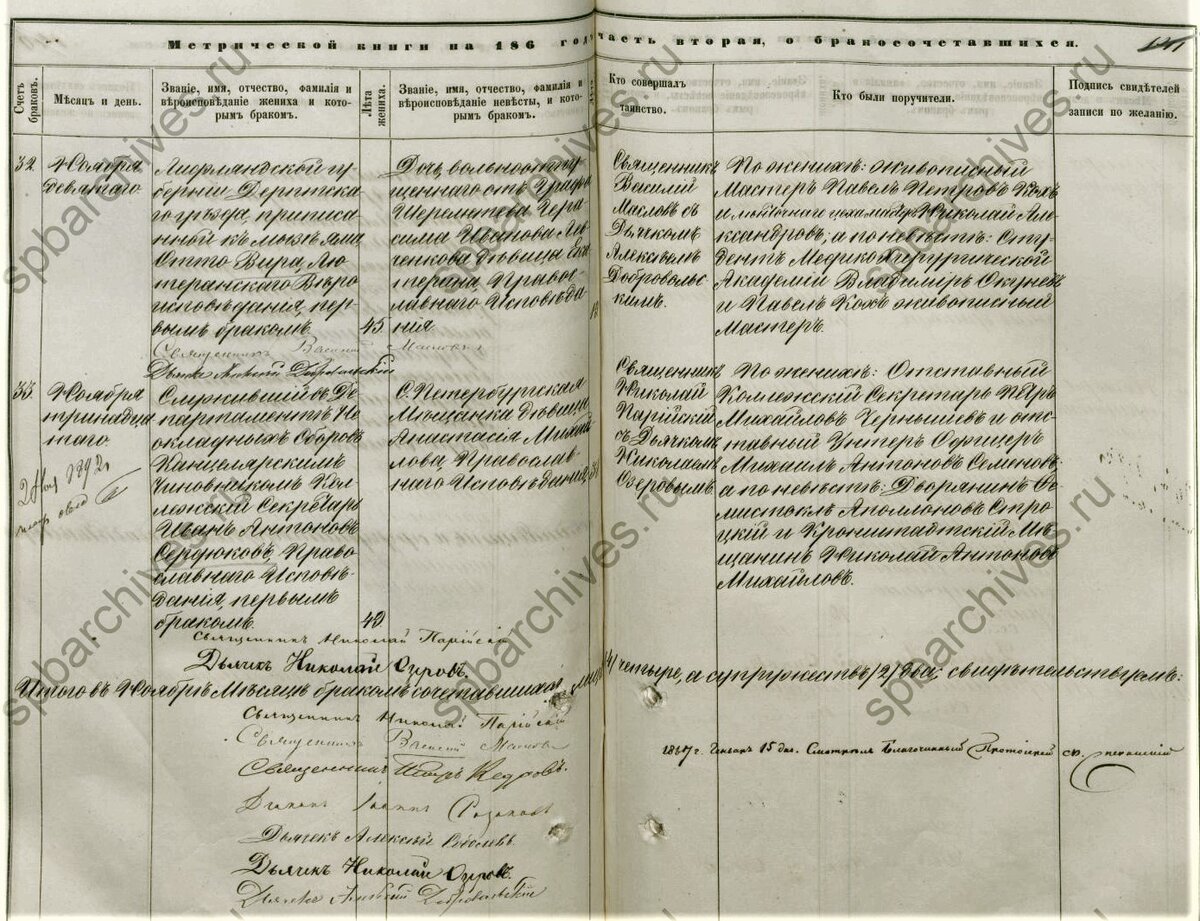 Метрической книги на 186 году часть вторая, о бракосочетавшихся.
Счетъ браковъ.
Мѣсяцъ и день.
Званіе, имя, отчество, фамилія и
вѣроисповѣданіе жениха и кото-
рымъ бракомъ.
Лѣта
жениха.
Званіе, имя, отчество, фамилія и
вѣроисповѣданіе невѣсты, и кото-
рымъ бракомъ.
Кто совершалъ
таинство.
Кто были поручители.
Подпись свидѣтелей
записи по желанію.
32.
Ноября
девятаго
Лифляндской гу-
берніи Дерптска-
го уѣзда, приписа
нной къ мызѣ Яма
Отто Вира, Лю-
теранскаго Вѣро
исповѣданія, пер-
вымъ бракомъ
45.
Дочь вольноотпу
щеннаго отъ Графа
Шереметева Гера
сима Иванова Лев
ченкова дѣвица Ека
терина Правос-
лавнаго Исповѣда-
нія
18
Священникъ
Василій
Масловъ съ
Дьячкомъ
Алексѣемъ
Добровольс-
кимъ.
По женихѣ: живописный
Мастеръ Павелъ Петровъ Кохъ
и Николай Але-
ксандровъ; а по невѣстѣ: Сту-
дентъ Медико-хирургической
Академіи Владиміръ Окуневъ
и Павелъ Кохъ живописный
Мастеръ.
Священникъ Василій Масловъ
Дьячекъ Алексѣй Добровольскій
33.
Ноября
тринадца
таго
Служившій въ Де-
партаментѣ Не
окладныхъ Сборовъ
Канцелярскимъ
Чиновникомъ Кол-
лежскій Секретарь
Иванъ Антоновъ
Сердюковъ, Право
славнаго Исповѣ-
данія, первымъ
бракомъ.
42.
С. Петербургская
Мѣщанка дѣвица
Анастасія Михай
лова, Православ-
наго Исповѣданія,
31
Священникъ
Николай
Парійскій
съ Дьячкомъ
Николаемъ
Озеровымъ.
По женихѣ: Отставный
Коллежскій Секретарь Пётръ
Михайловъ Чернышевъ и отс-
тавный Унтеръ Офицеръ
Михаилъ Антоновъ Семеновъ;
а по невѣстѣ: Дворянинъ Ѳе-
мистоклъ Аполлоновъ Стро-
цкій и Кронштадтскій Мѣ-
щанинъ Николай Антоновъ
Михайловъ.
1892 г.
Священникъ Николай Парійскій
Дьячекъ Николай Озровъ.
Итого въ Ноябрѣ Мѣсяцѣ бракомъ сочетавшихся лицъ /4/ четыре, а супружествъ /2/ два; свидѣтельствуемъ:
Священникъ Николай Парійскій
Священникъ Василій Масловъ
Священникъ Петръ Кедровъ.
Діаконъ Іоаннъ
Дьячекъ Алексѣй
Дьячекъ Николай Озровъ.
Дьячекъ Алексѣй Добровольскій
1867 г. Генваря 15 дня. Смотрѣлъ Благочинный Протоіерей
spbarchives.ru
spbarchives.ru
spbarchives.ru
spbarchives.ru
spbarchives.ru
spbarchives.ru